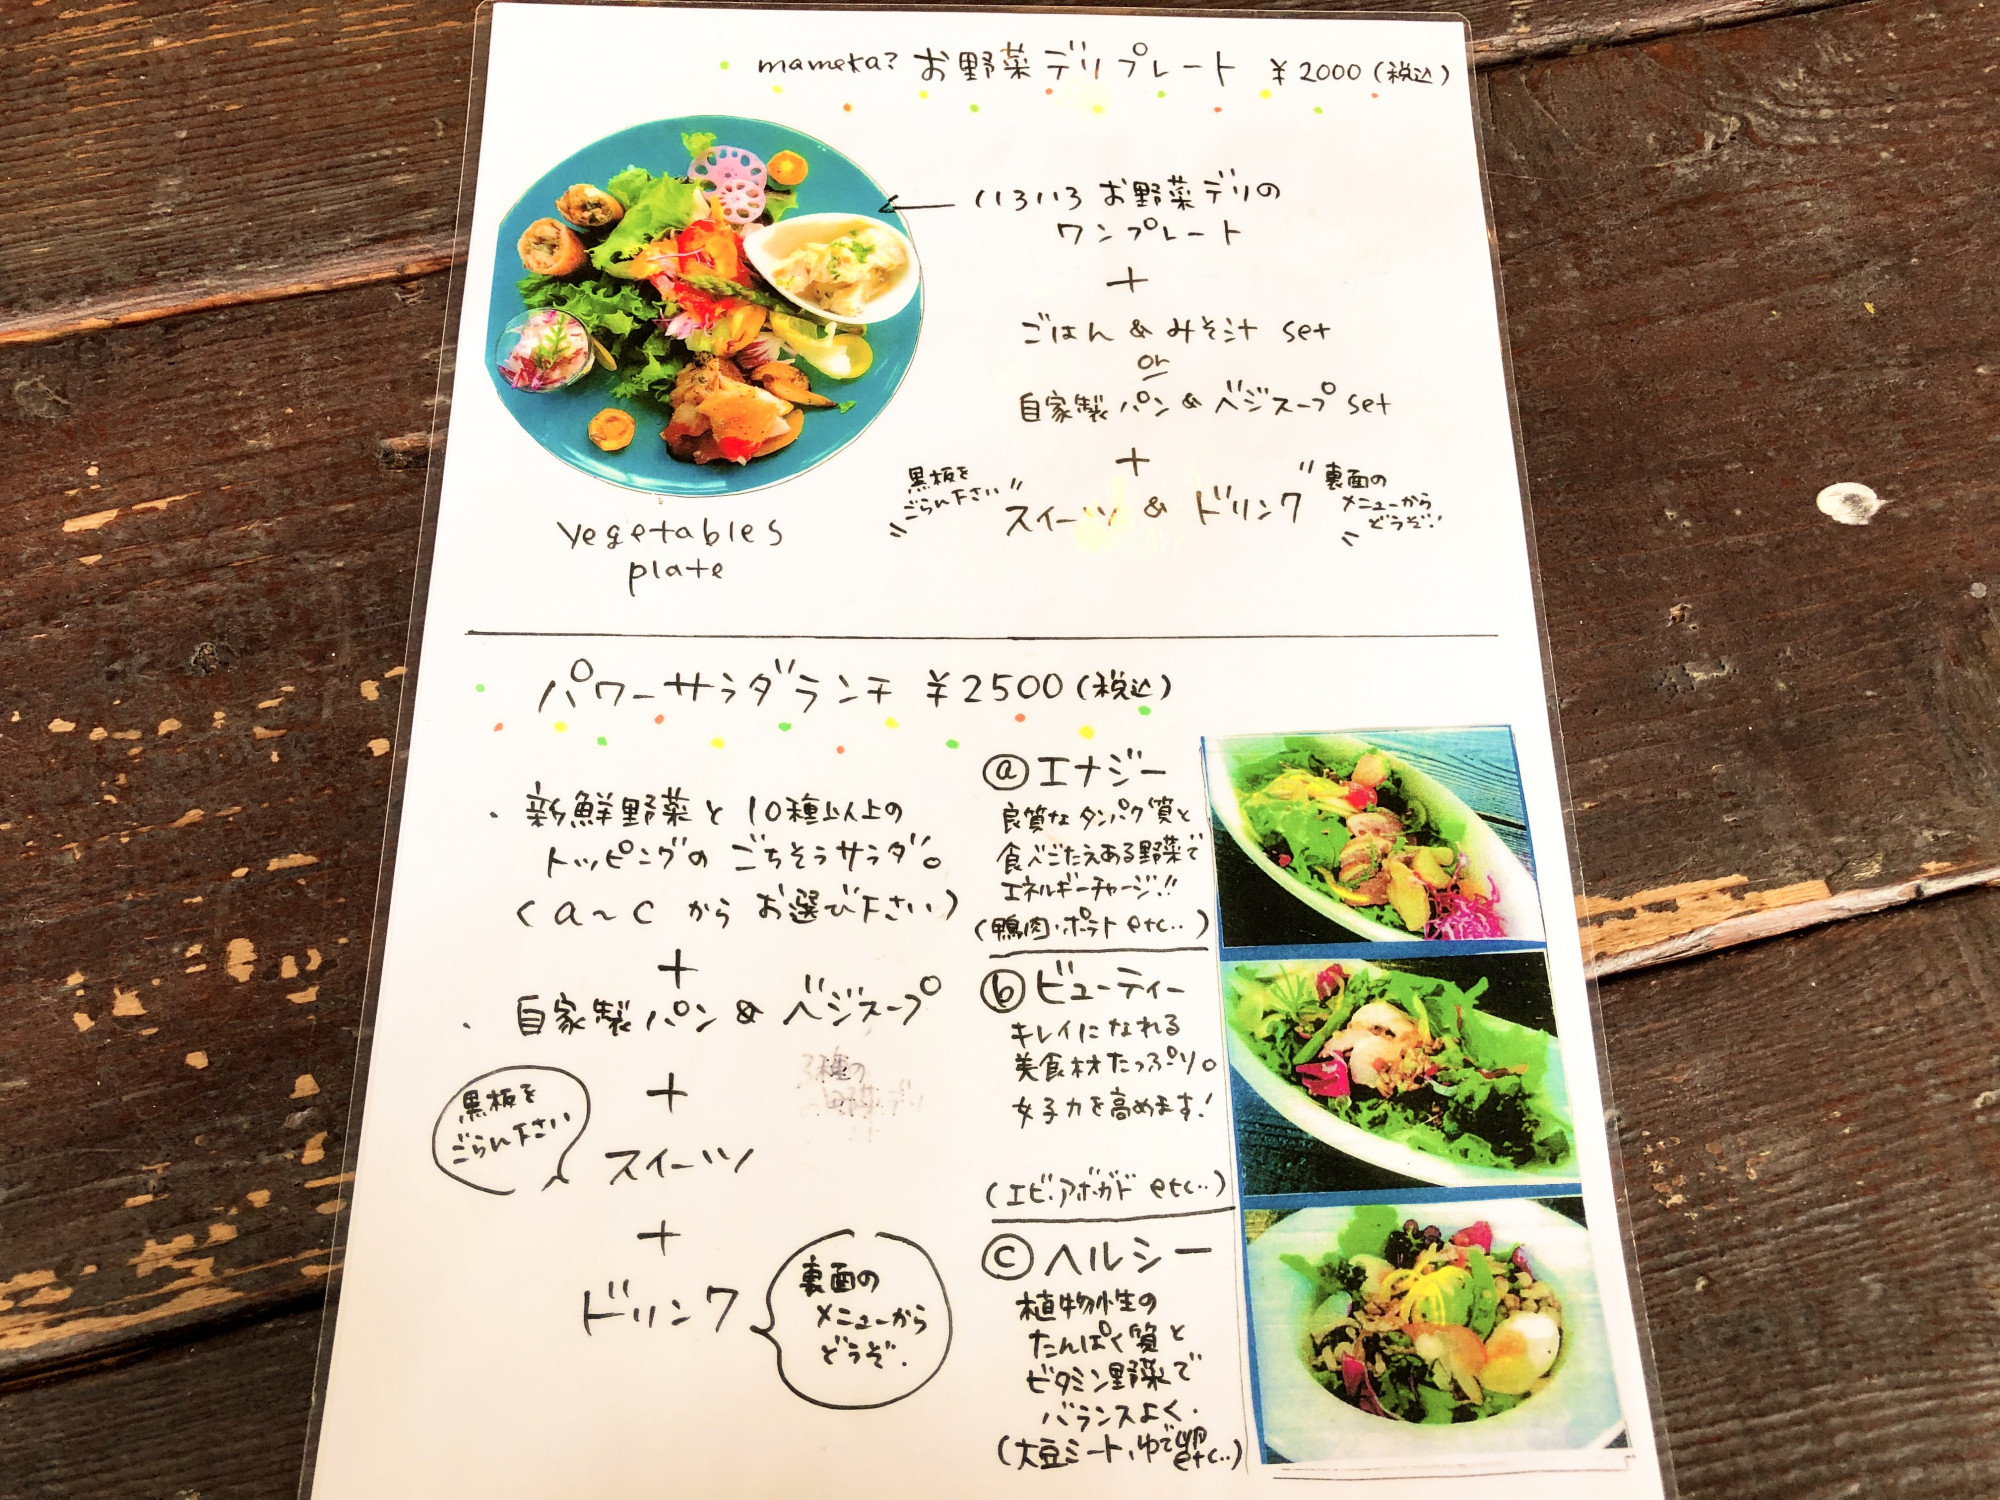 mameka? お野菜デリプレート ¥2000(税込)
いろいろお野菜デリの
ワンプレート
+
ごはん & みそ汁 set
or
自家製パン & ベジスープ set
+
黒板を
ごらん下さい
スイーツ & ドリンク
裏面の
メニューから
どうぞ!
vegetables
plate
パワーサラダランチ ¥2500(税込)
・新鮮野菜と10種以上の
トッピングの ごちそうサラダ。
(a~c からお選び下さい)
+
・自家製パン & ベジスープ
+
黒板を
ごらん下さい
スイーツ
+
ドリンク
裏面の
メニューから
どうぞ.
3種の
野菜デリ
ⓐエナジー
良質なタンパク質と
食べごたえある野菜で
エネルギーチャージ!!
(鴨肉・ポテト etc..)
ⓑビューティー
キレイになれる
美食材たっぷり。
女子力を高めます!
(エビ・アボガド etc..)
ⓒヘルシー
植物性の
たんぱく質と
ビタミン野菜で
バランスよく.
(大豆ミート、ゆで卵 etc..)